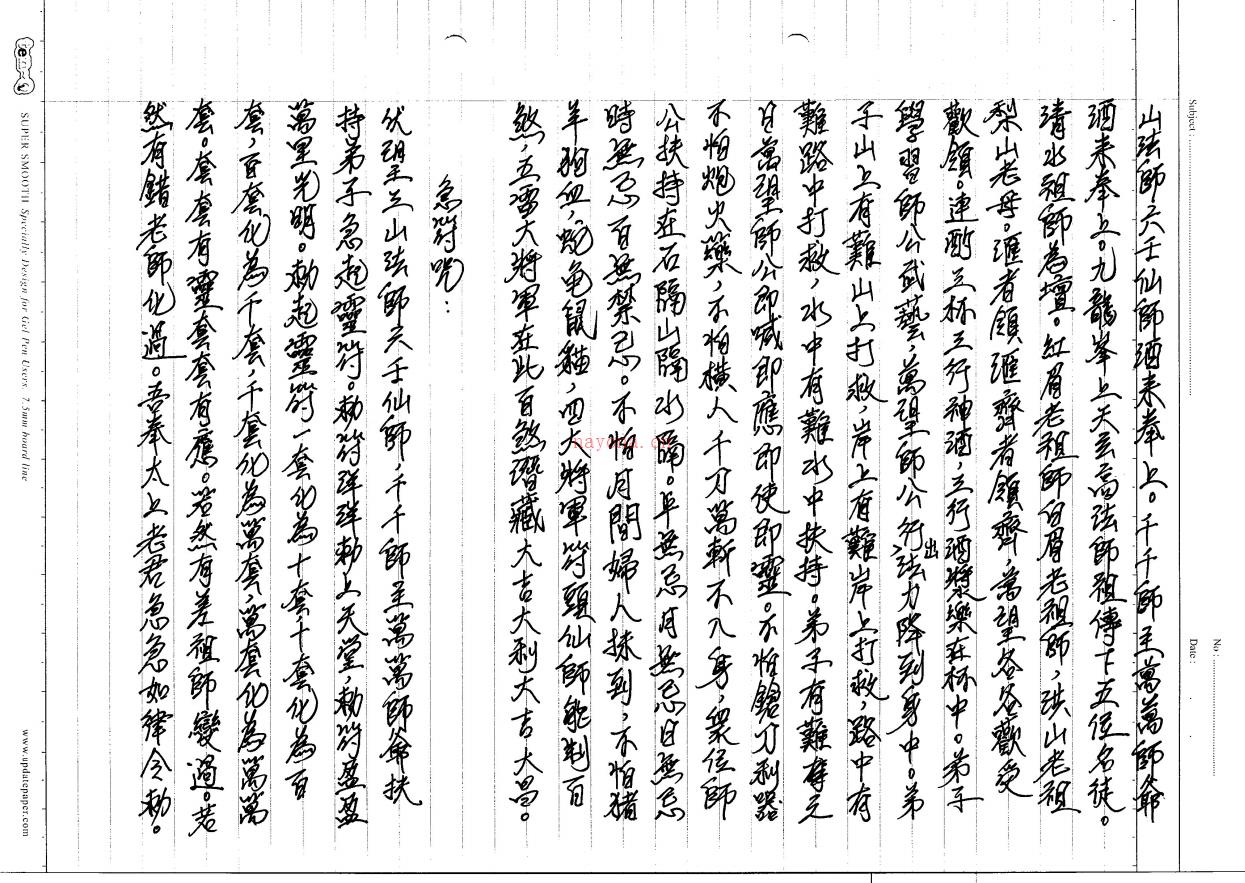 山法師六壬仙師酒來奉上。千千師主萬萬師爺
酒來奉上。九龍峯上天玄高法師祖傳下五位名徒。
清水祖師為壇。紅眉老祖師白眉老祖師,洪山老祖
梨山老母。滙者領滙齊者領齊,萬望各各歡受
歡領。連酌三杯三行神酒,三行酒漿藥在杯中。弟子
學習師公武藝,萬望師公行出法力降到身中。弟
子山上有難山上打救,岸上有難岸上打救,路中有
難路中打救,水中有難水中扶持。弟子有難奉元
日萬望師公即喊即應即使即靈。不怕鎗刀利器
不怕炮火藥,不怕橫人千刀萬斬不入身,衆位師
公扶持在石隔山隔水隔。年無忌月無忌日無忌
時無忌百無禁忌。不怕月間婦人抹到,不怕猪
羊狗血,蛇龟鼠貓,四大將軍符頭仙師能制百
煞,五雷大將軍在此百煞潛藏大吉大利大吉大昌。
急符咒:
伏望主三山法師六壬仙師,千千師主萬萬師爺扶
持弟子急起靈符。勅符洋洋勅上天堂,勅符盈盈
萬里光明。勅起靈符一套化為十套,十套化為百
套,百套化為千套,千套化為萬套,萬套化為萬萬
套。套套有靈套套有應。若然有差祖師變過。若
然有錯老師化過。吾奉太上老君急急如律令勅。
Subject :
No :
Date :
SUPER SMOOTH Specially Design for Gel Pen Users. 7.5mm board line
www.updatepaper.com